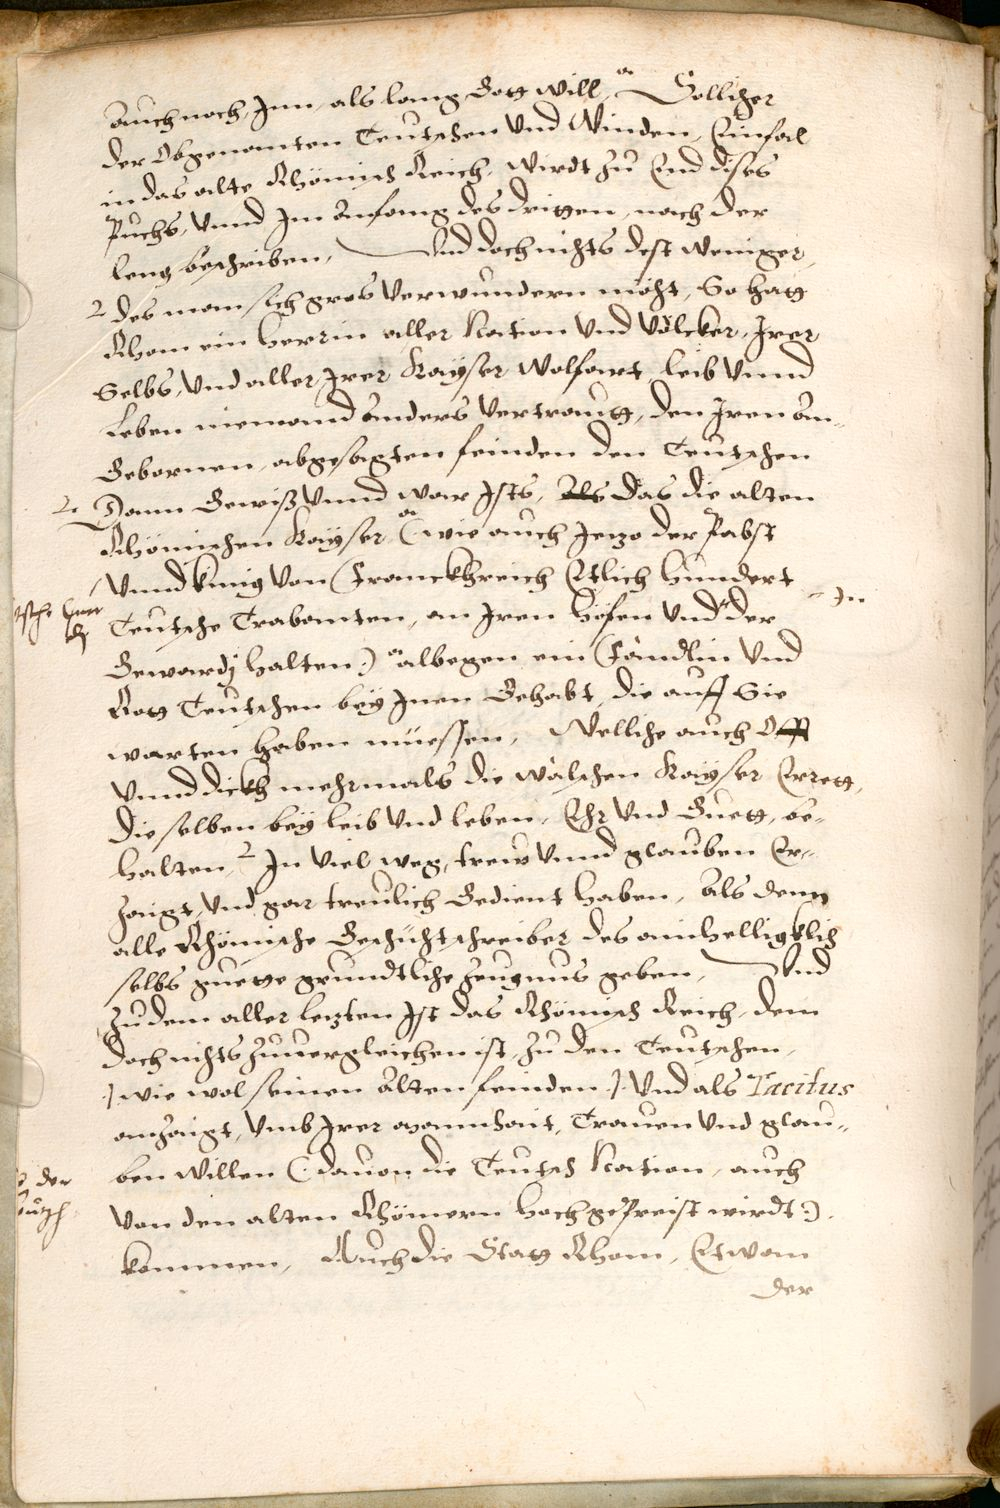 Auch noch, Inn, als lang Gott will, Sollicher
der Obgenanten Teutschen Vnd Winden, Einfal
in das alte Rhömisch Reich, wirdt zu End dises
Puchs, Vnnd Im Anfang des dritten, nach der
leng beschriben, Vnd doch nichts dest weniger,
2 des man sich gros Verwundern möcht, So hatt
Rhom ein herrin aller Nation Vnd Völcker, Irer
Selbs, Vnd aller Irer Kayser Wolfart leib Vnnd
Leben niemand Anders Vertrautt, den Iren An-
Gebornen, abgesagten feinden den Teutschen
2. Dann Gewiß Vnnd war Ists, Als das die alten
Rhömischen Kayser (wie auch Jetzo der Pabst
Vnnd künig Von Franckhreich Etlich hundert
Teutsche Trabanten, an Iren höfen Vnd der - In
Gwardj halten:) albegen ein Fändlin Vnd
Rott Teutschen bey Inen Gehabt, die auff Sie
warten haben müessen, Welliche auch Offt
Vnnd dickh mehrmals die Wälschen Kayser Errett,
die selben bey leib Vnd leben, Ehr Vnd Guett, be-
halten, 2 In Viel weg, trew Vnnd glauben Er-
zaigt, Vnd gar treulich Gedient haben, Als denn
alle Rhömische Geschichtschreiber des ainhelligklich
selbs guette grundtliche zeugnus geben, Vnd
Zu dem aller letzten Ist das Rhömisch Reich, dem
doch nichts Zuuergleichen ist, Zu den Teutschen,
wie wol seinen Alten feinden Vnd als Tacitus
anzaigt, Vmb Irer mannhait, Trauen Vnd glau-
ben willen (: dauon die Teutsch Nation, auch
Von den alten Rhömern hoch gepreist wirdt:)
kommen, Auch die Statt Rhom, Etwan
der